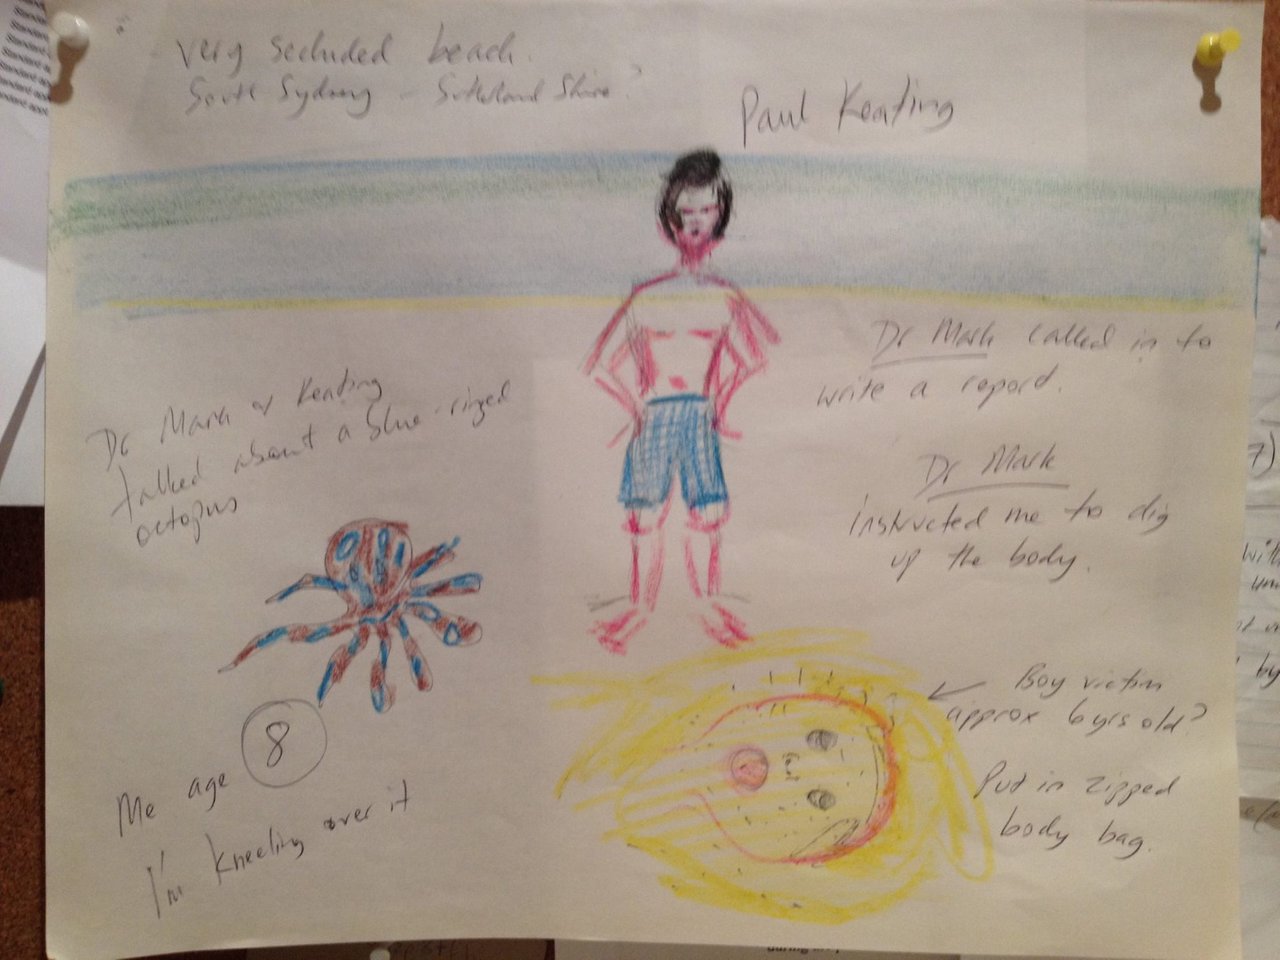 very secluded beach.
South Sydney - Sutherland Shire?
Paul Keating
Dr Mark called in to
write a report.
Dr Mark & Keating
talked about a blue-ringed
octopus
Dr Mark
instructed me to dig
up the body.
Boy victim
approx 6yrs old?
Put in zipped
body bag.
Me age 8
I'm kneeling over it
Standard
Standard
Standard
7)
with
by